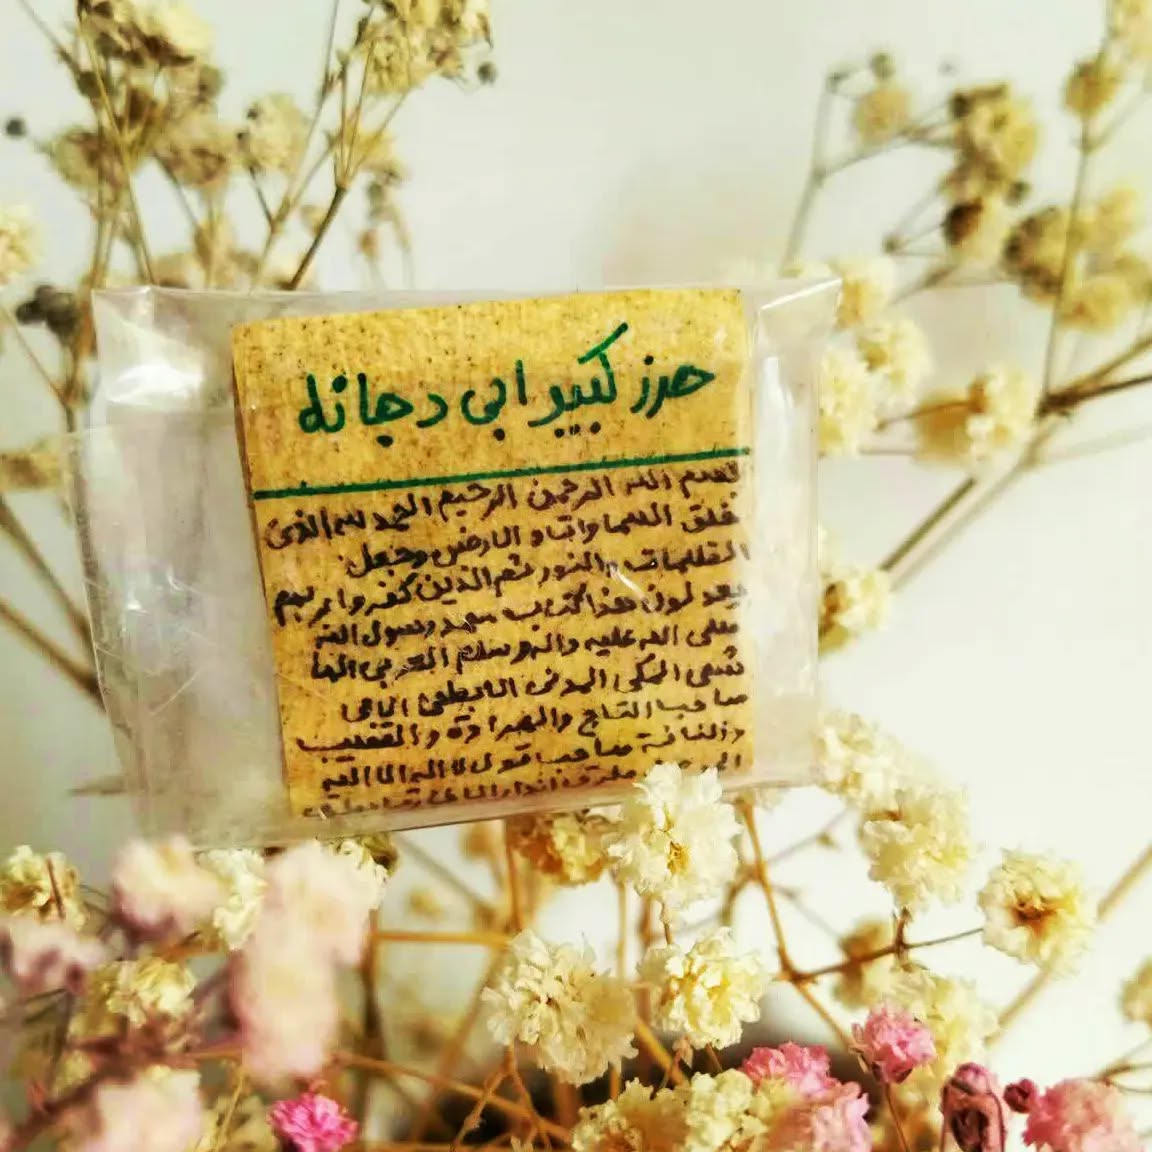 حرز کبیر ابی دجانه
بسم الله الرحمن الرحیم الحمد لله الذی
خلق السماوات و الارض و جعل
الظلمات والنور ثم الذین کفروا بربهم
یعدلون هذا کتاب محمد رسول الله
صلی الله علیه واله وسلم العربی الها
شمی المکی المدنی الابطحی الامی
صاحب التاج والهراوة والقضیب
والناقة صاحب قول لا اله الا الله
الی من طرق الدار